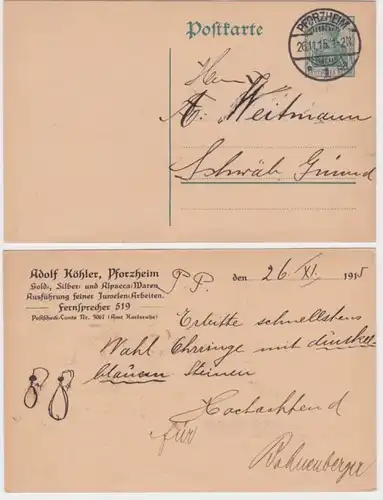 Postkarte
PFORZHEIM
26.11.15. 1-2N.
Herrn
A. Weitmann
Schwäb. Gmünd
Adolf Köhler, Pforzheim
Gold-, Silber- und Alpacca-Waren
Ausführung feiner Juwelen-Arbeiten.
Fernsprecher 519
Postscheck-Conto Nr. 5061 (Amt Karlsruhe)
P.P. den 26. XI. 1915
Erbitte schnellstens
Wahl Ohrringe mit dunkel
blauen Steinen
Hochachtend
für